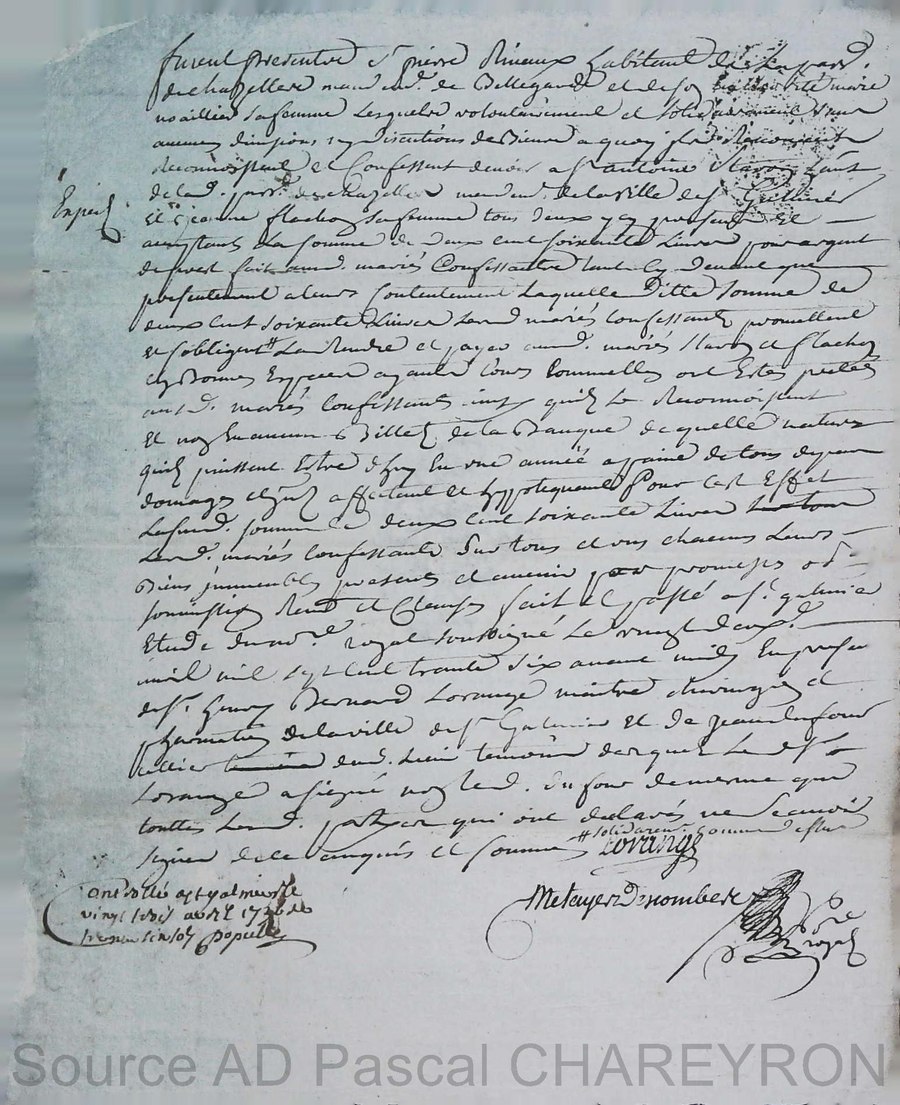 furent presentes Sr pierre Rivaux habitant de la parr.
de chazelles mand. de Bellegarde et de son authorité marie
noaillier sa femme Lesquels volontairement et solidairement sans
aucunes divisions ny discutions de Biens a quoy ils Renoncent
Reconnoissent et Confessent devoir a Sr antoine
Exped
de lad. parr. de chazelles mandem. de la ville de St Galmier
Et Jeanne flachon sa femme tous deux icy presents Et
acceptants La somme de deux cent soixante Livres pour argent
de prest fait aud. mariés Confessants tant cy devant que
presentement a leurs Contentement Laquelle ditte somme de
deux cent soixante Livres Lesd mariés confessants promettent
et s'obligent # La Rendre et payer aud. mariés et flachon
en Bonnes Especes ayants Cours Commelles ont Estés prestées
aud. mariés Confessants ainsy quils Le Reconnoissent
Et non En aucuns Billets de la Banque de quelle nature
quils puissent Estre d'huy En une année a paine de tous depans
domages affectant et hypotequant Pour cet Effet
La susd. somme de deux Cent soixante Livres
Lesd. mariés confessants Sur tous et uns chacuns Leurs
Biens immeubles presents et avenir par promesses
soumissions Renon. et Clauses fait et passé a St galmier
Etude du no.re royal soussigné Le vingt deux
mil sept cent trante six avant midy En presence
de Sr henry Bernard Lorange maitre chirurgien et
de la ville de St Galmier et de Jean dufour
dud. Lieu temoins desquels Le d. Sr
Lorange a signé non led. Dufour de mesme que
touttes Lesd. parties qui ont declarés ne scavoir
signer de ce enquis et sommés # solidairemt comme dessus
Lorange
Controllé a St galmier le
vingt avril 1736
sols populle
Metayer Desnombes
no.re
royal
Source AD Pascal CHAREYRON